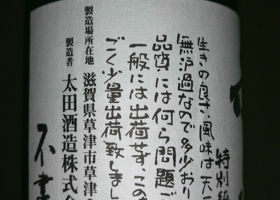 特別純
生きの良さ、風味は天一
無沪過なので多少おり
品質には何ら問題ご
一般には出荷せず、この
ごく少量出荷致しまし
製造場所在地 滋賀県草津市草津
製造者 太田酒造株式会
不